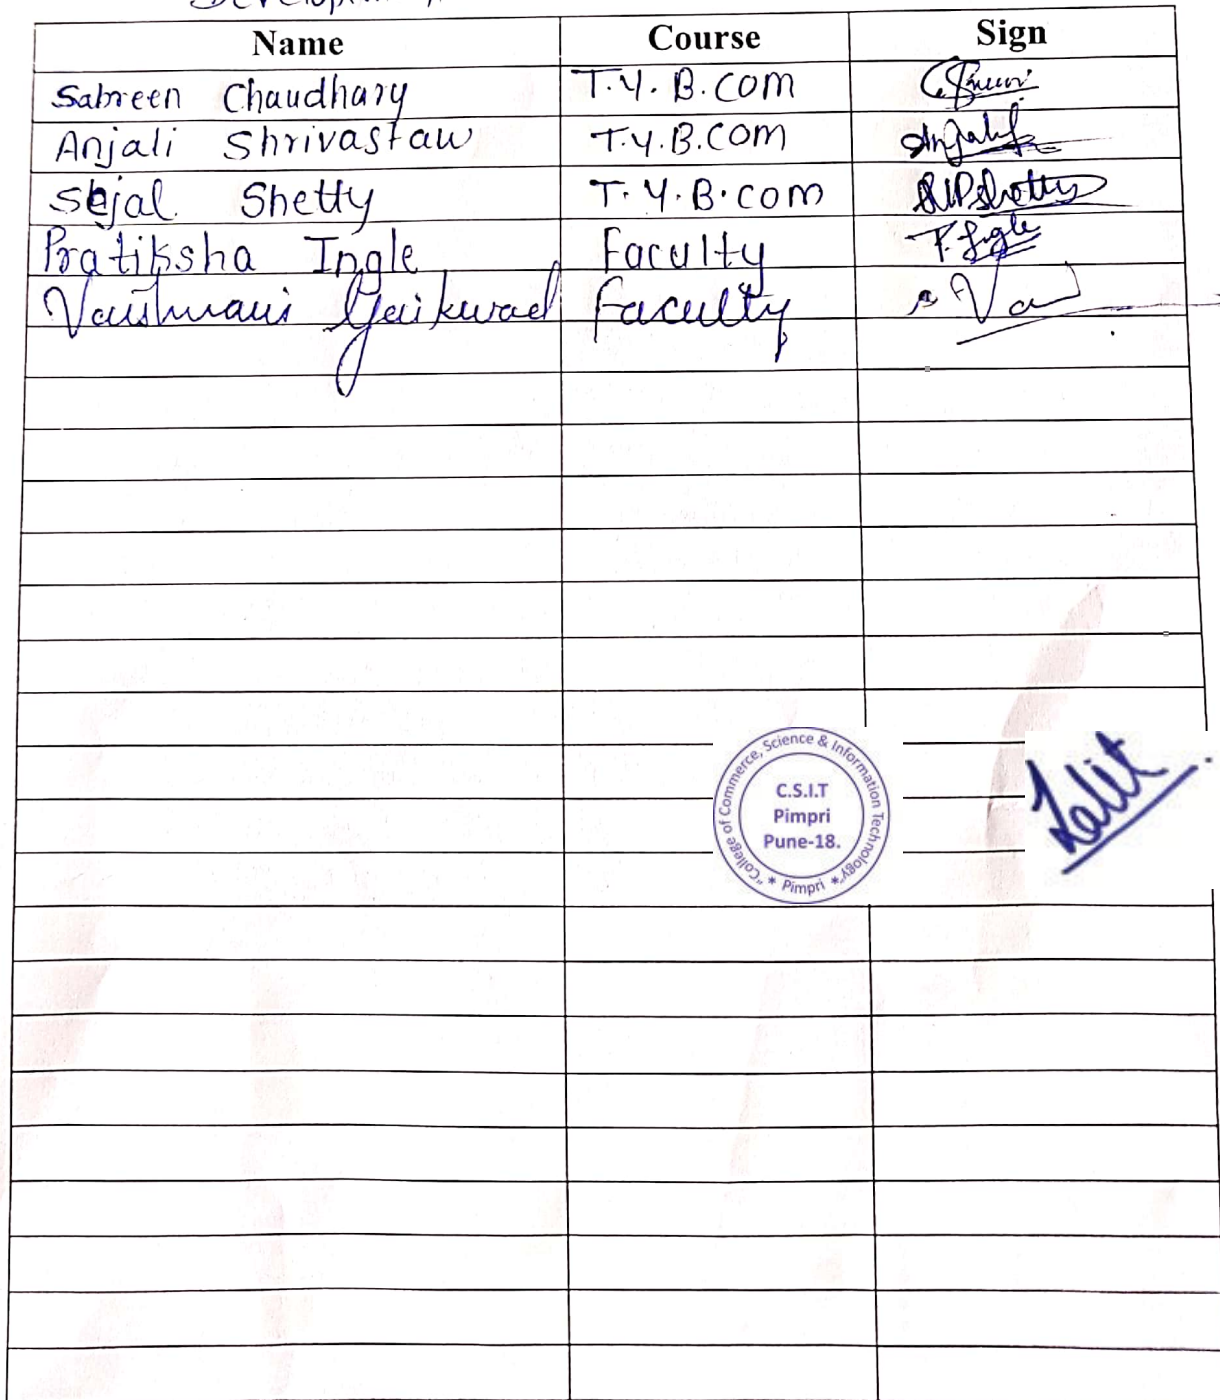 Name Course Sign
Sabreen Chaudhary T.Y.B.COM
Anjali Shrivastaw T.Y.B.COM Anjali
Sejal Shetty T.Y.B.COM S.V.P.Shetty
Pratiksha Ingle Faculty P.Ingle
Vaishnavi Gaikwad Faculty
"College of Commerce, Science & Information Technology"
C.S.I.T
Pimpri
Pune-18.
* Pimpri *
Lalit